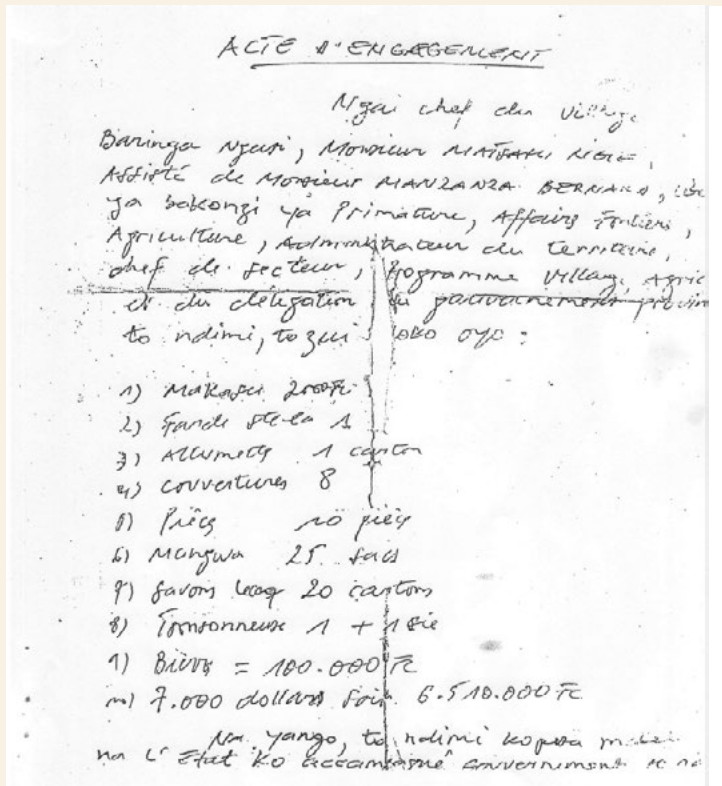 ACTE D'ENGAGEMENT
Ngai chef du village
Baringa Ngasi, Monsieur
Assisté de Monsieur MANZANZA BERNARD,
ya bakonzi ya Primature, Affaires
Agriculture, Administrateur du territoire,
chef de secteur, Programme Village, Agric
et du délégation du gouvernement provin
to ndimi, to zui loko oyo :
1) Makasu
2) 1
3) Allumettes 1 carton
4) Couvertures 8
5) 10
6) Mungwa 25 sacs
7) Savons 20 cartons
8) Tronsonneuse 1 + 1 scie
9) Bières = 100.000 FC
10) 7.000 dollars soit 6.510.000 FC
Na yango, to ndimi kopesa
na l'Etat ko